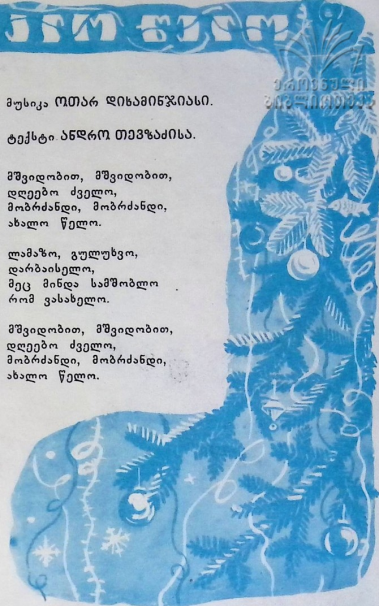 ლო წელო
ეროვნული
ბიბლიოთეკა
მუსიკა ოთარ დიხამინჯიასი.
ტექსტი ანდრო თევზაძისა.
მშვიდობით, მშვიდობით,
დღეებო ძველო,
მობრძანდი, მობრძანდი,
ახალო წელო.
ლამაზო, გულუხვო,
დარბაისელო,
მეც მინდა სამშობლო
რომ ვასახელო.
მშვიდობით, მშვიდობით,
დღეებო ძველო,
მობრძანდი, მობრძანდი,
ახალო წელო.